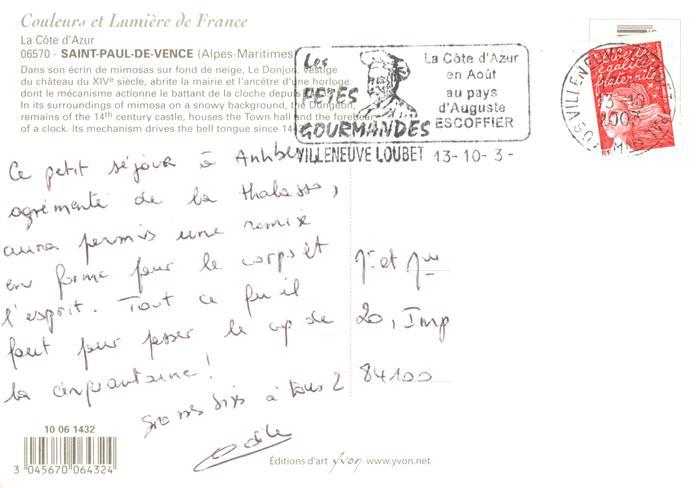 Couleurs et Lumière de France
La Côte d'Azur
06570 - SAINT-PAUL-DE-VENCE (Alpes-Maritimes)
Dans son écrin de mimosas sur fond de neige, Le Donjon, vestige
du château du XIVe siècle, abrite la mairie et l'ancêtre d'une horloge
dont le mécanisme actionne le battant de la cloche depuis
In its surroundings of mimosa on a snowy background, the Dungeon,
remains of the 14th century castle, houses the Town hall and the forebear
of a clock. Its mechanism drives the bell tongue since
Les
FETES
GOURMANDES
La Côte d'Azur
en Août
au pays
d'Auguste
ESCOFFIER
VILLENEUVE LOUBET 13-10-3-
Liberté
égalité
fraternité
RF
13-10
2003
Ce petit séjour à Antibes
agrémenté de la thalasso,
aura permis une remix
en forme pour le corps et
l'esprit. Tout ce qu'il
faut pour passer le cap de
la cinquantaine!
Gros bisous à tous 2
Odile
Mr et Mme
20, Imp
84100
10 06 1432
3 045670 064324
Éditions d'art Yvon www.yvon.net